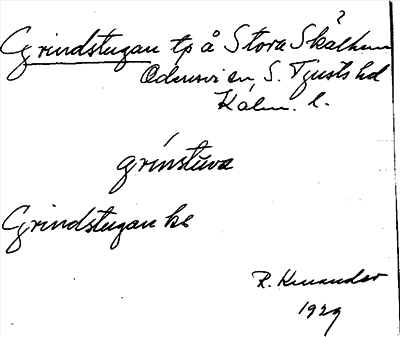 Grindstugan tp å Stora Skälhem
Odensvi sn, S. Tjusts hd
Kalm. l.
grinstuva
Grindstugan kl
R. Kenander
1929